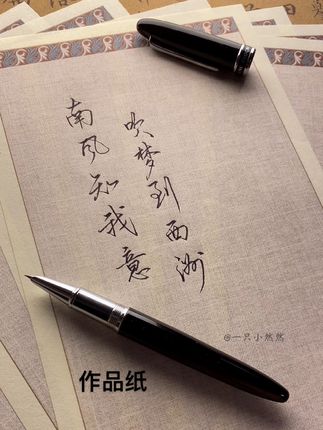 南风知我意
吹梦到西洲
@一只小然然
作品纸